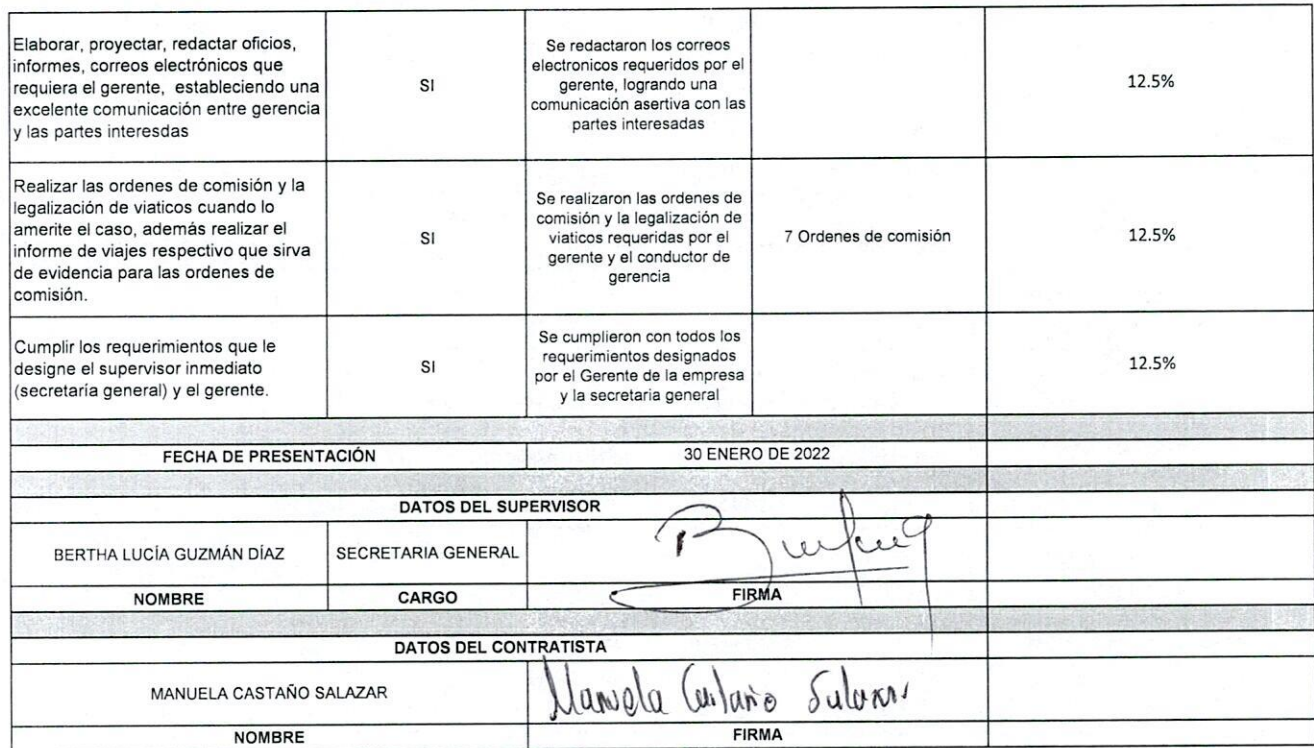 Elaborar, proyectar, redactar oficios,
informes, correos electrónicos que
requiera el gerente, estableciendo una
excelente comunicación entre gerencia
y las partes interesdas
SI
Se redactaron los correos
electronicos requeridos por el
gerente, logrando una
comunicación asertiva con las
partes interesadas
12.5%
Realizar las ordenes de comisión y la
legalización de viaticos cuando lo
amerite el caso, además realizar el
informe de viajes respectivo que sirva
de evidencia para las ordenes de
comisión.
SI
Se realizaron las ordenes de
comisión y la legalización de
viaticos requeridas por el
gerente y el conductor de
gerencia
7 Ordenes de comisión
12.5%
Cumplir los requerimientos que le
designe el supervisor inmediato
(secretaría general) y el gerente.
SI
Se cumplieron con todos los
requerimientos designados
por el Gerente de la empresa
y la secretaria general
12.5%
FECHA DE PRESENTACIÓN
30 ENERO DE 2022
DATOS DEL SUPERVISOR
BERTHA LUCÍA GUZMÁN DÍAZ
SECRETARIA GENERAL
NOMBRE
CARGO
FIRMA
DATOS DEL CONTRATISTA
MANUELA CASTAÑO SALAZAR
Manuela Castaño Salazar
NOMBRE
FIRMA